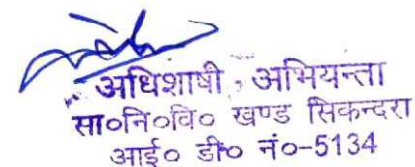 अधिशाषी अभियन्ता
सा०नि०वि० खण्ड सिकन्दरा
आई० डी० नं०-5134